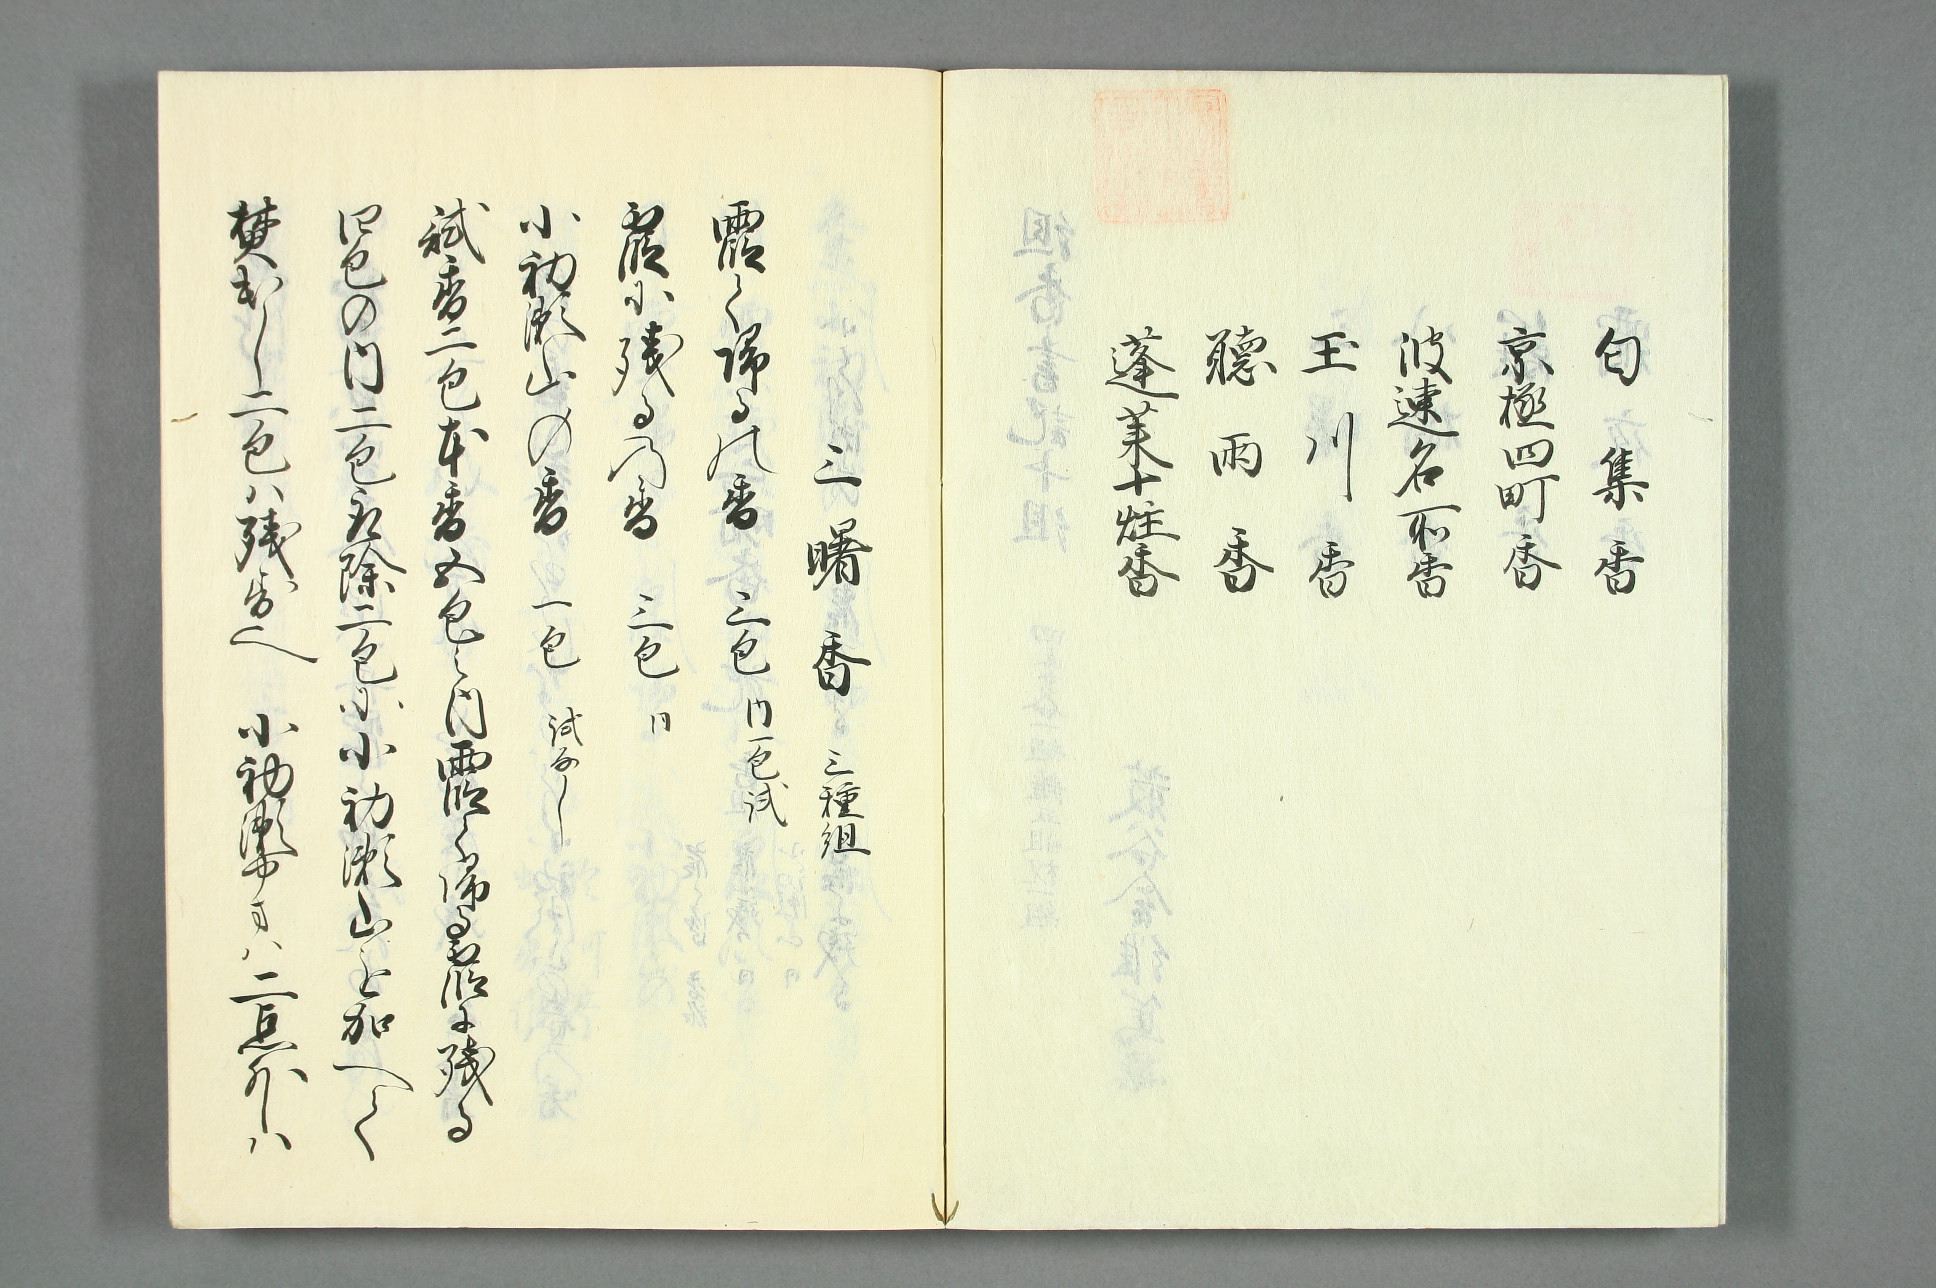 匂集香
京極四町香
波速名所香
玉川香
聴雨香
蓬莱十炷香
三曙香 三種組
霞て帰るの香 三包 内一包試
霞に残るの香 三包 同
小初瀬山の香 一包 試なし
試香二包本香五包之内霞て帰る霞に残る
四包の内二包取除二包に小初瀬山を加へて
焚出し二包ハ残香へ 小初瀬中すハ二点外しハ